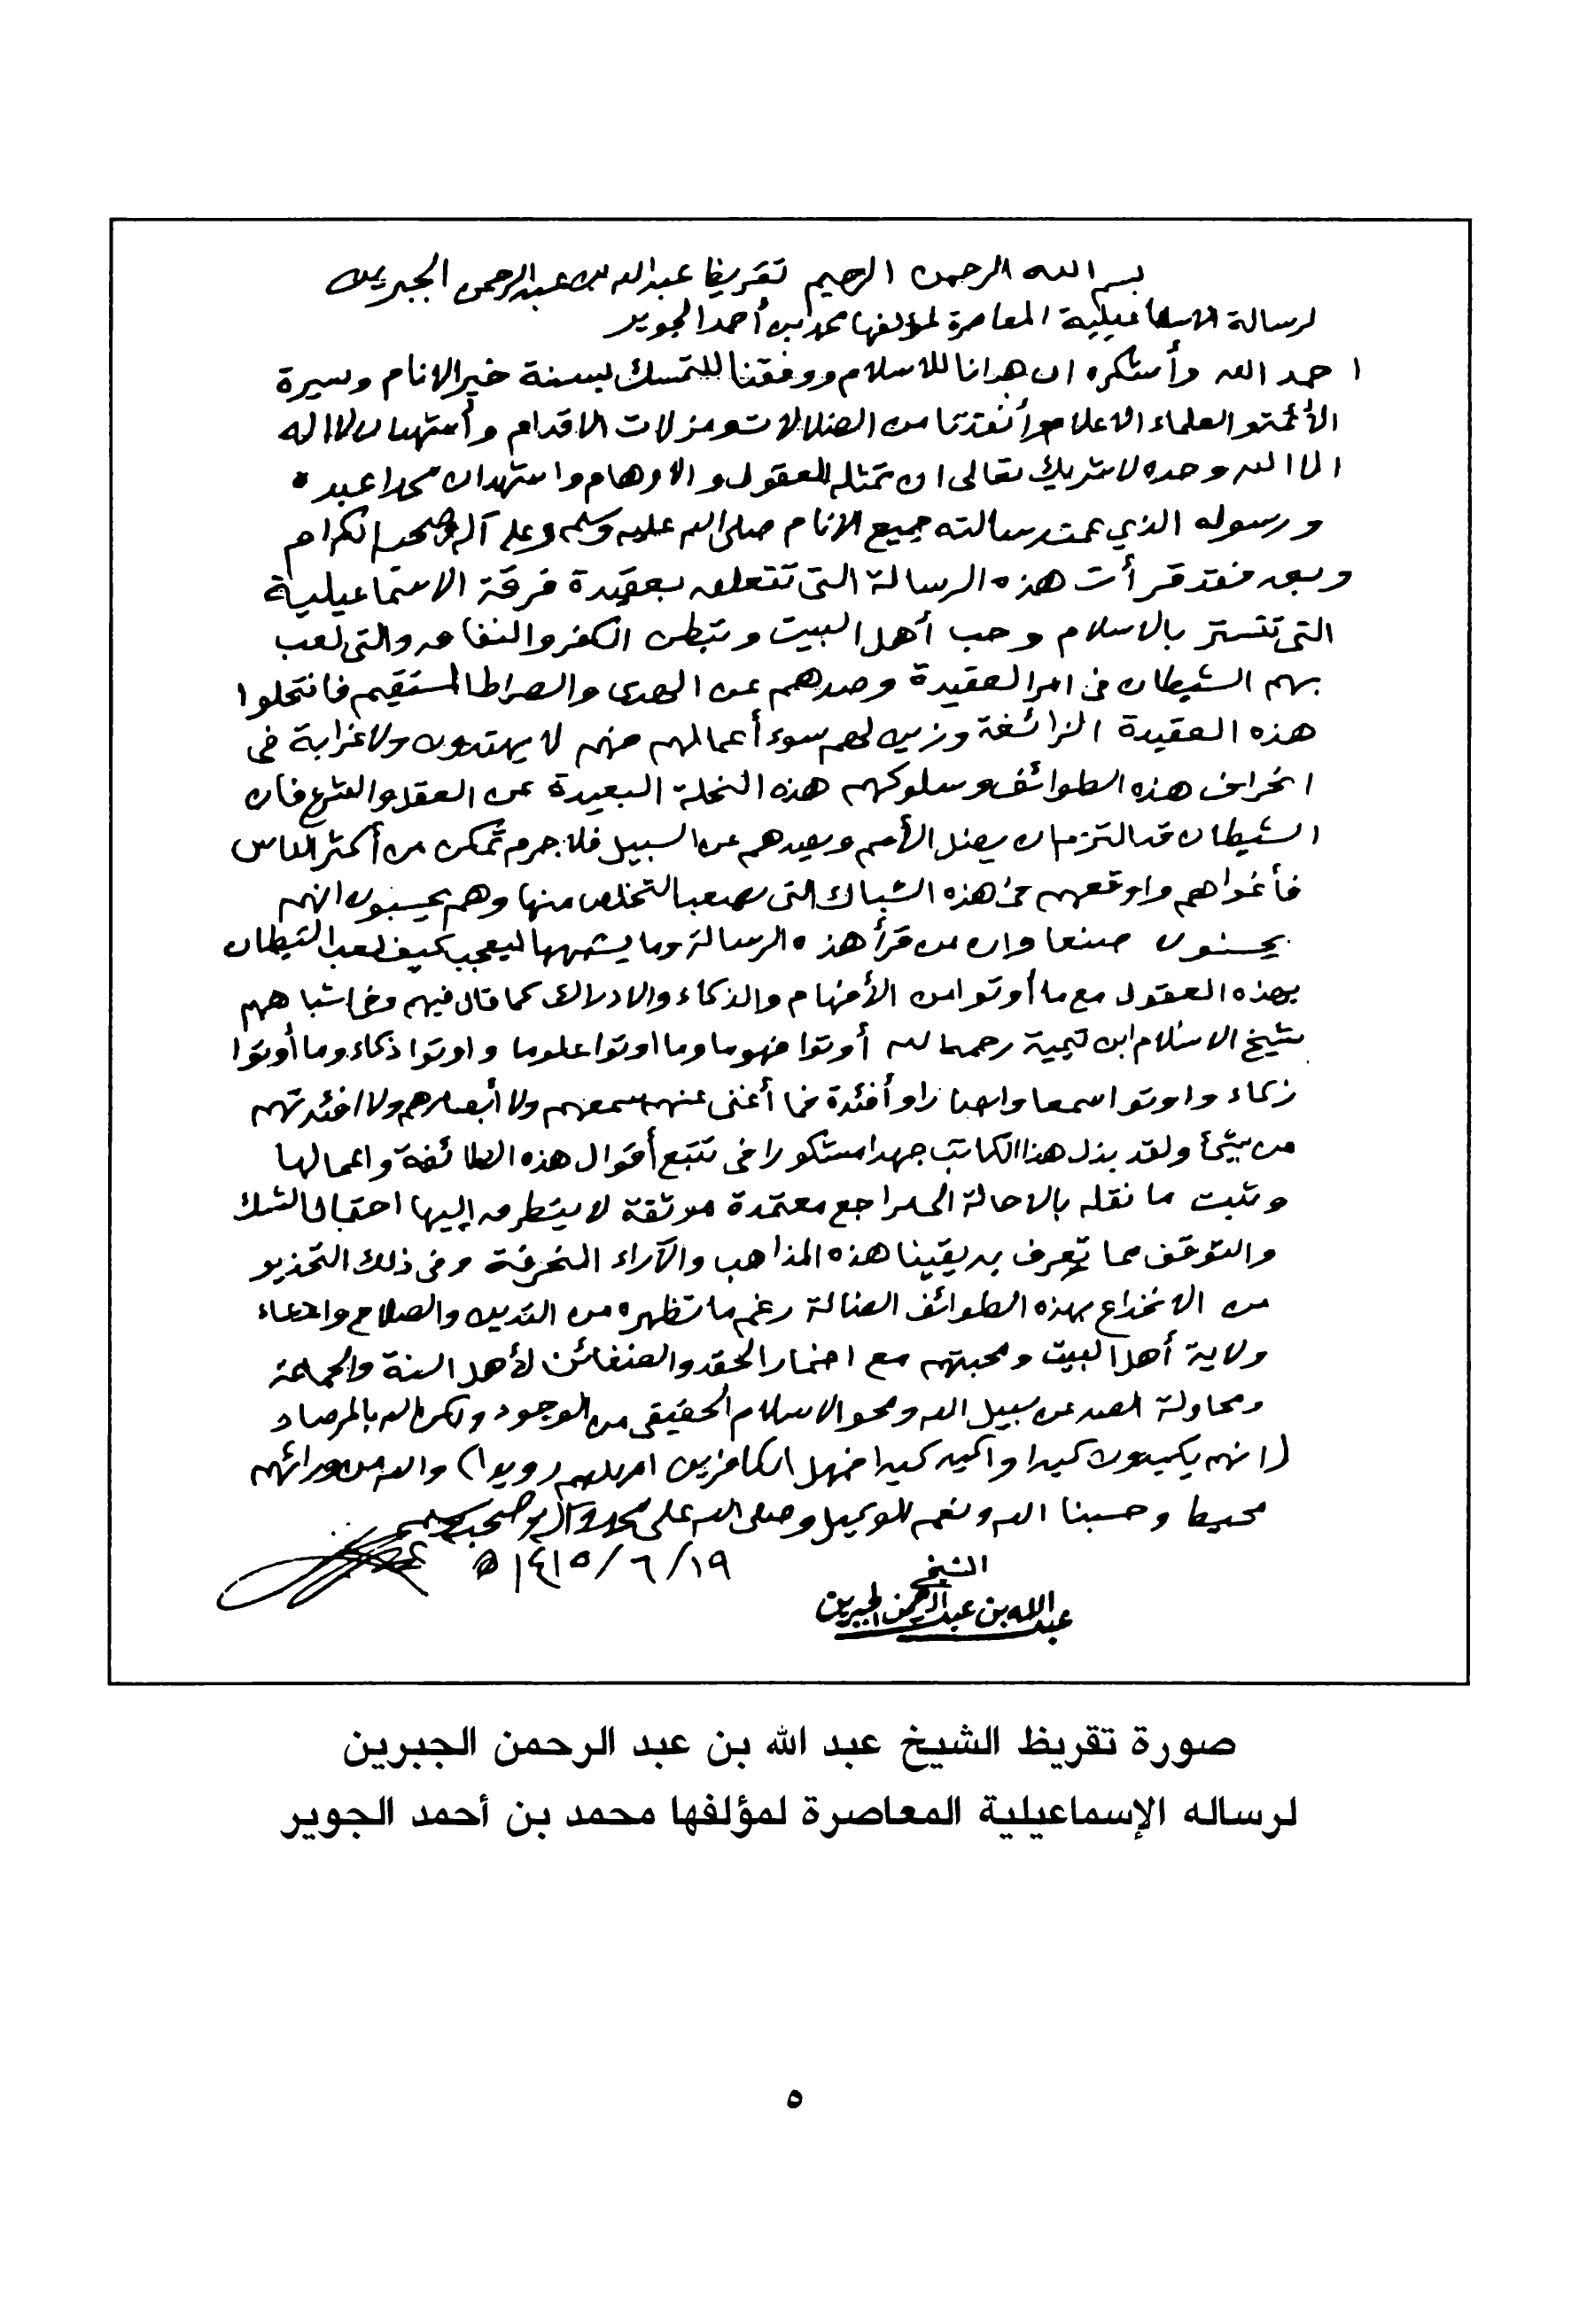 بسم الله الرحمن الرحيم تقريظ عبدالله بن عبدالرحمن الجبرين
لرسالة الاسماعيلية المعاصرة لمؤلفها محمد بن أحمد الجوير
احمد الله وأشكره ان هدانا للاسلام ووفقنا للتمسك بسنة خير الانام وسيرة
الأئمة والعلماء الاعلام وأنقذنا من الضلالات ومزلات الاقدام وأشهد ان لا اله
الا الله وحده لا شريك تعالى ان تمثله العقول والاوهام واشهد ان محمدا عبده
ورسوله الذي عمت رسالته جميع الانام صلى الله عليه وسلم وعلى آله وصحبه الكرام
وبعد فقد قرأت هذه الرسالة التي تتعلق بعقيدة فرقة الاسماعيلية
التي تتستر بالاسلام وحب أهل البيت وتبطن الكفر والنفاق والتي لعب
بهم الشيطان في امر العقيدة وصدهم عن الهدى والصراط المستقيم فانتحلوا
هذه العقيدة الزائغة وزين لهم سوء أعمالهم فهم لا يهتدون ولا غرابة في
انحراف هذه الطوائف وسلوكهم هذه النحلة البعيدة عن العقل والشرع فان
الشيطان قد التزم ان يضل الأمم ويصدهم عن السبيل فلا جرم تمكن من أكثر الناس
فأغواهم واوقعهم في هذه الشباك التي يصعب التخلص منها وهم يحسبون انهم
يحسنون صنعا وان من قرأ هذه الرسالة وما يشبهها ليعجب كيف لعب الشيطان
بهذه العقول مع ما أوتوا من الأفهام والذكاء والادراك كما قال فيهم وفي اشباههم
شيخ الاسلام ابن تيمية رحمه الله أوتوا فهوما وما اوتوا علوما واوتوا ذكاء وما أوتوا
زكاء واوتوا سمعا وابصارا وأفئدة فما أغنى عنهم سمعهم ولا أبصارهم ولا افئدتهم
من شيء ولقد بذل هذا الكاتب جهدا مشكورا في تتبع أقوال هذه الطائفة واعمالها
وتثبت ما نقله بالاحالة الى مراجع معتمدة موثقة لا يتطرق إليها احتمال الشك
والتوقف مما تعرف به يقينا هذه المذاهب والآراء المنحرفة وفي ذلك التحذير
من الانخداع بهذه الطوائف الضالة رغم ما تظهره من التدين والصلاح وادعاء
ولاية أهل البيت ومحبتهم مع اضمار الحقد والضغائن لأهل السنة والجماعة
ومحاولة الصد عن سبيل الله ومحو الاسلام الحقيقي من الوجود ولكن الله بالمرصاد
(انهم يكيدون كيدا واكيد كيدا فمهل الكافرين امهلهم رويدا) والله من ورائهم
محيط وحسبنا الله ونعم الوكيل وصلى الله على محمد وآله وصحبه وسلم
١٤١٥/٦/١٩ هـ
الشيخ
عبدالله بن عبدالرحمن الجبرين
صورة تقريظ الشيخ عبد الله بن عبد الرحمن الجبرين
لرساله الإسماعيلية المعاصرة لمؤلفها محمد بن أحمد الجوير
٥